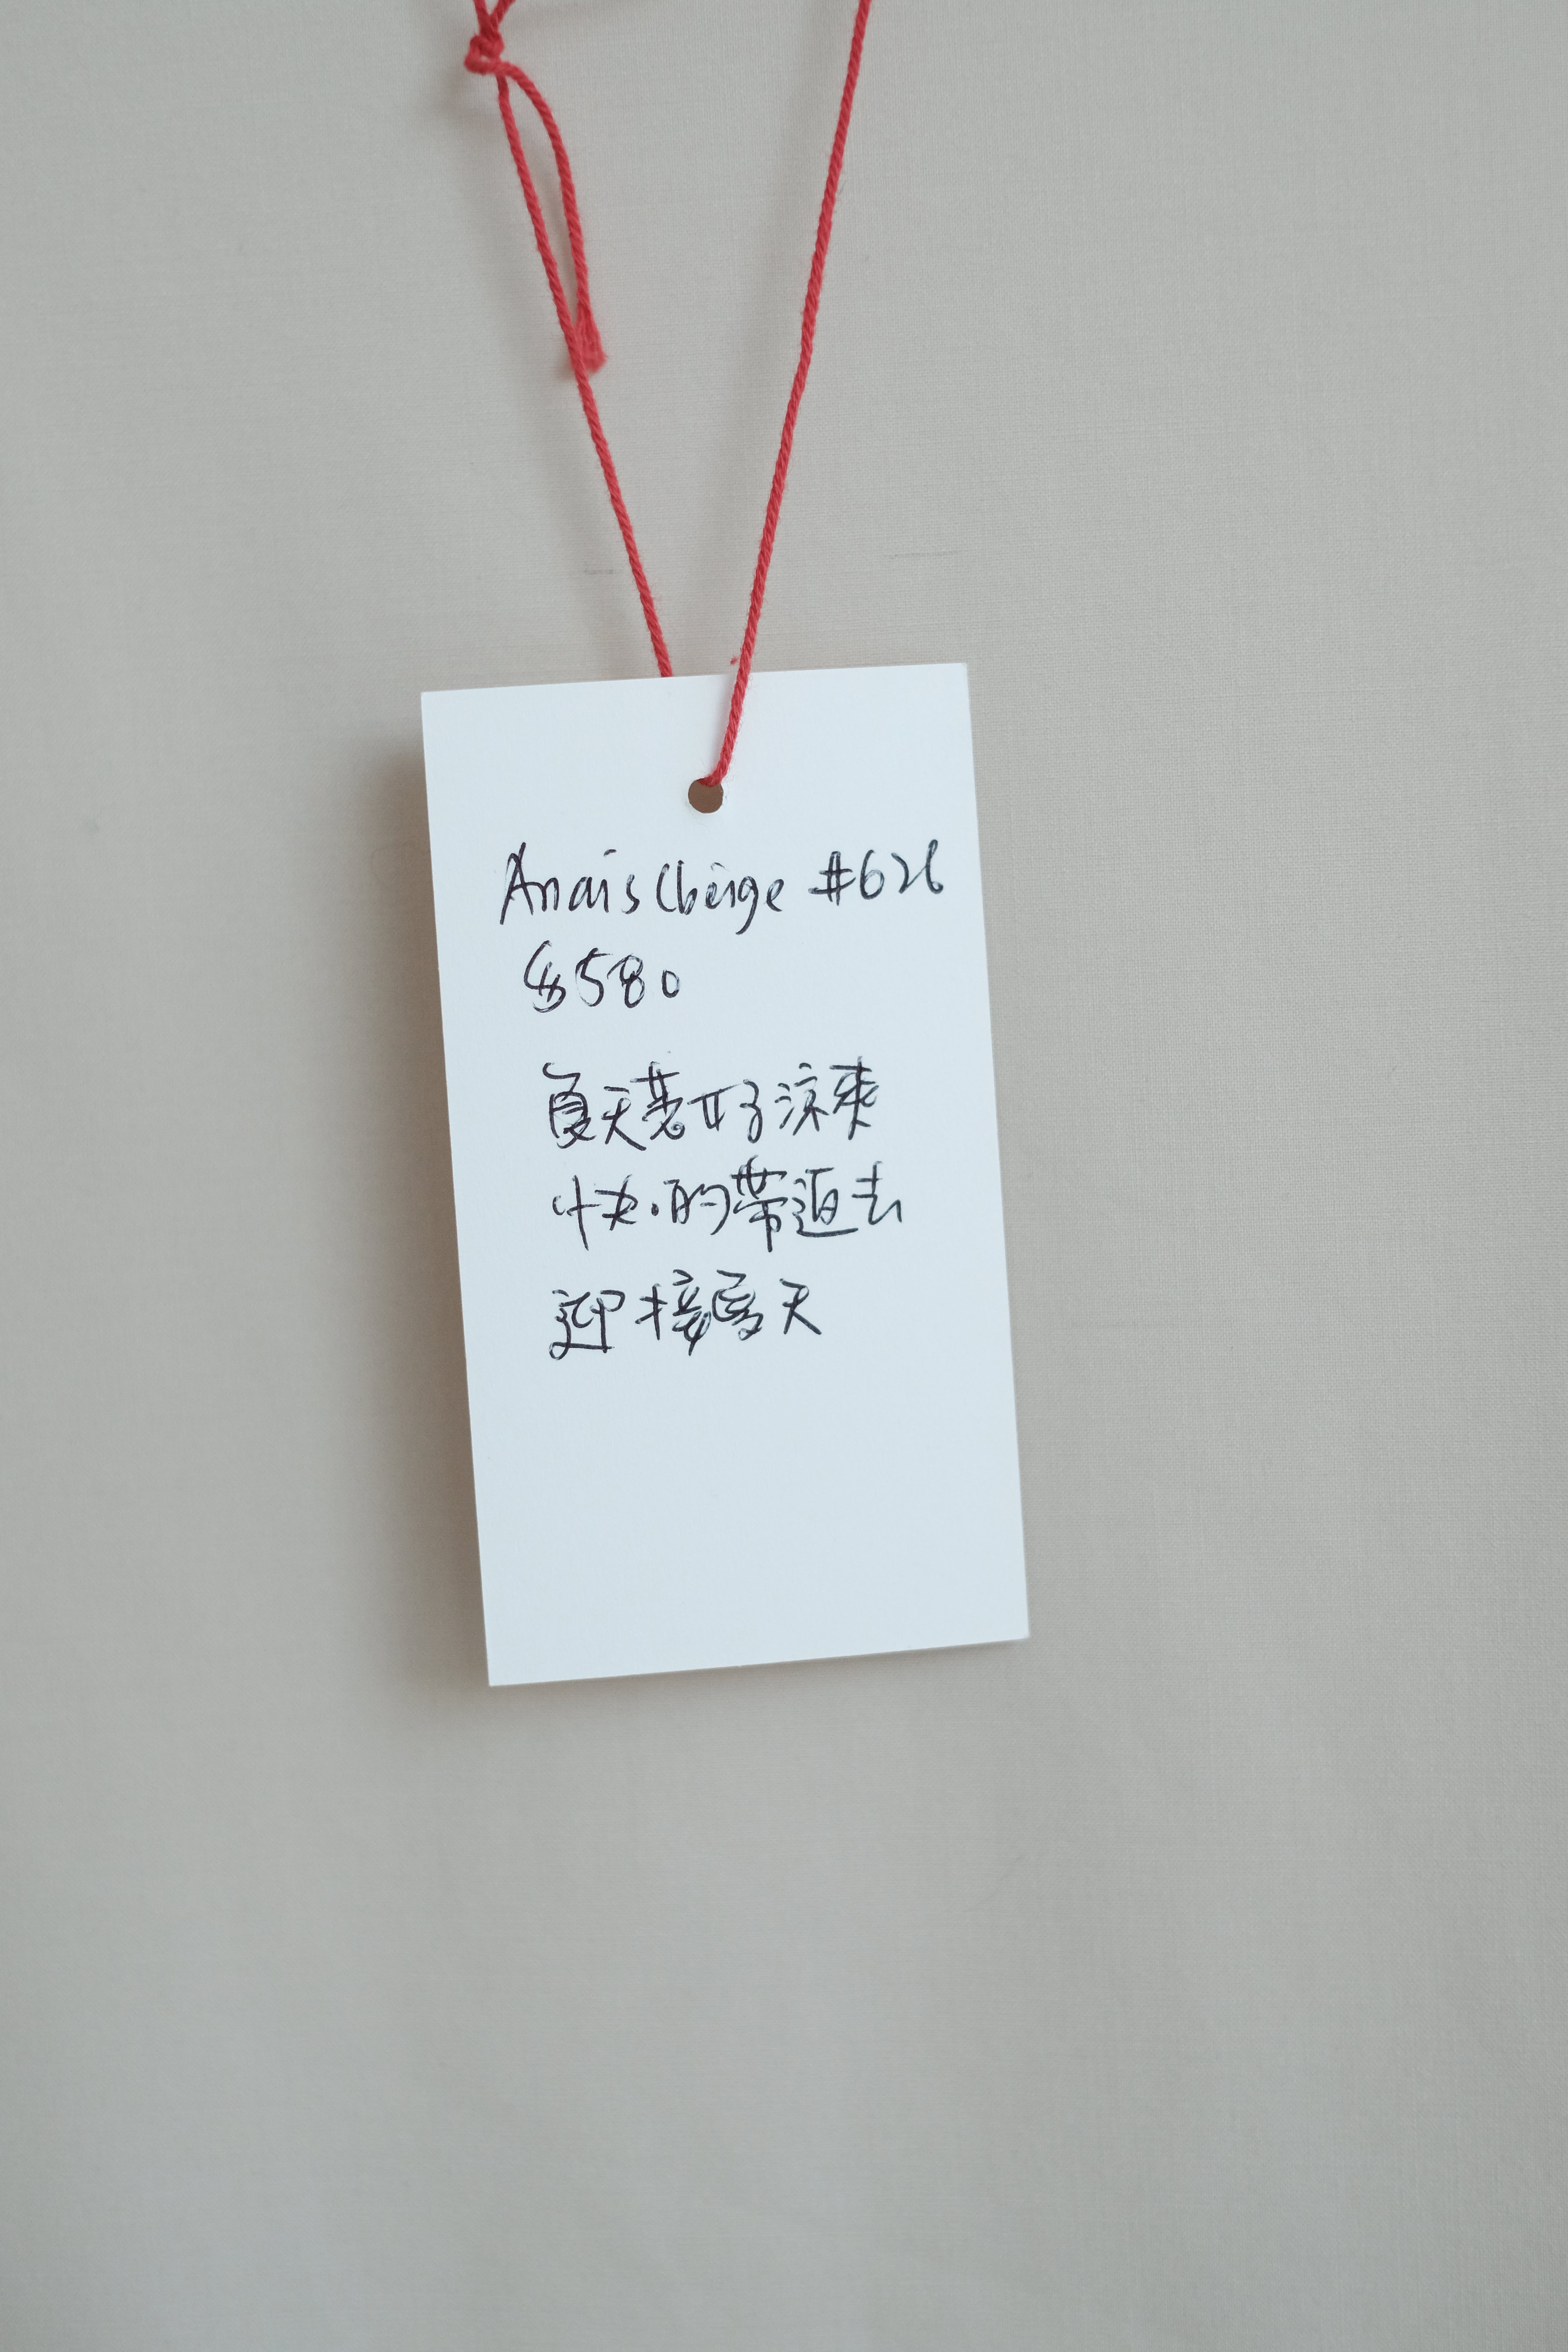 Anais (beige #626
$580
夏天著廿好涼爽
快的帶返去
迎接夏天